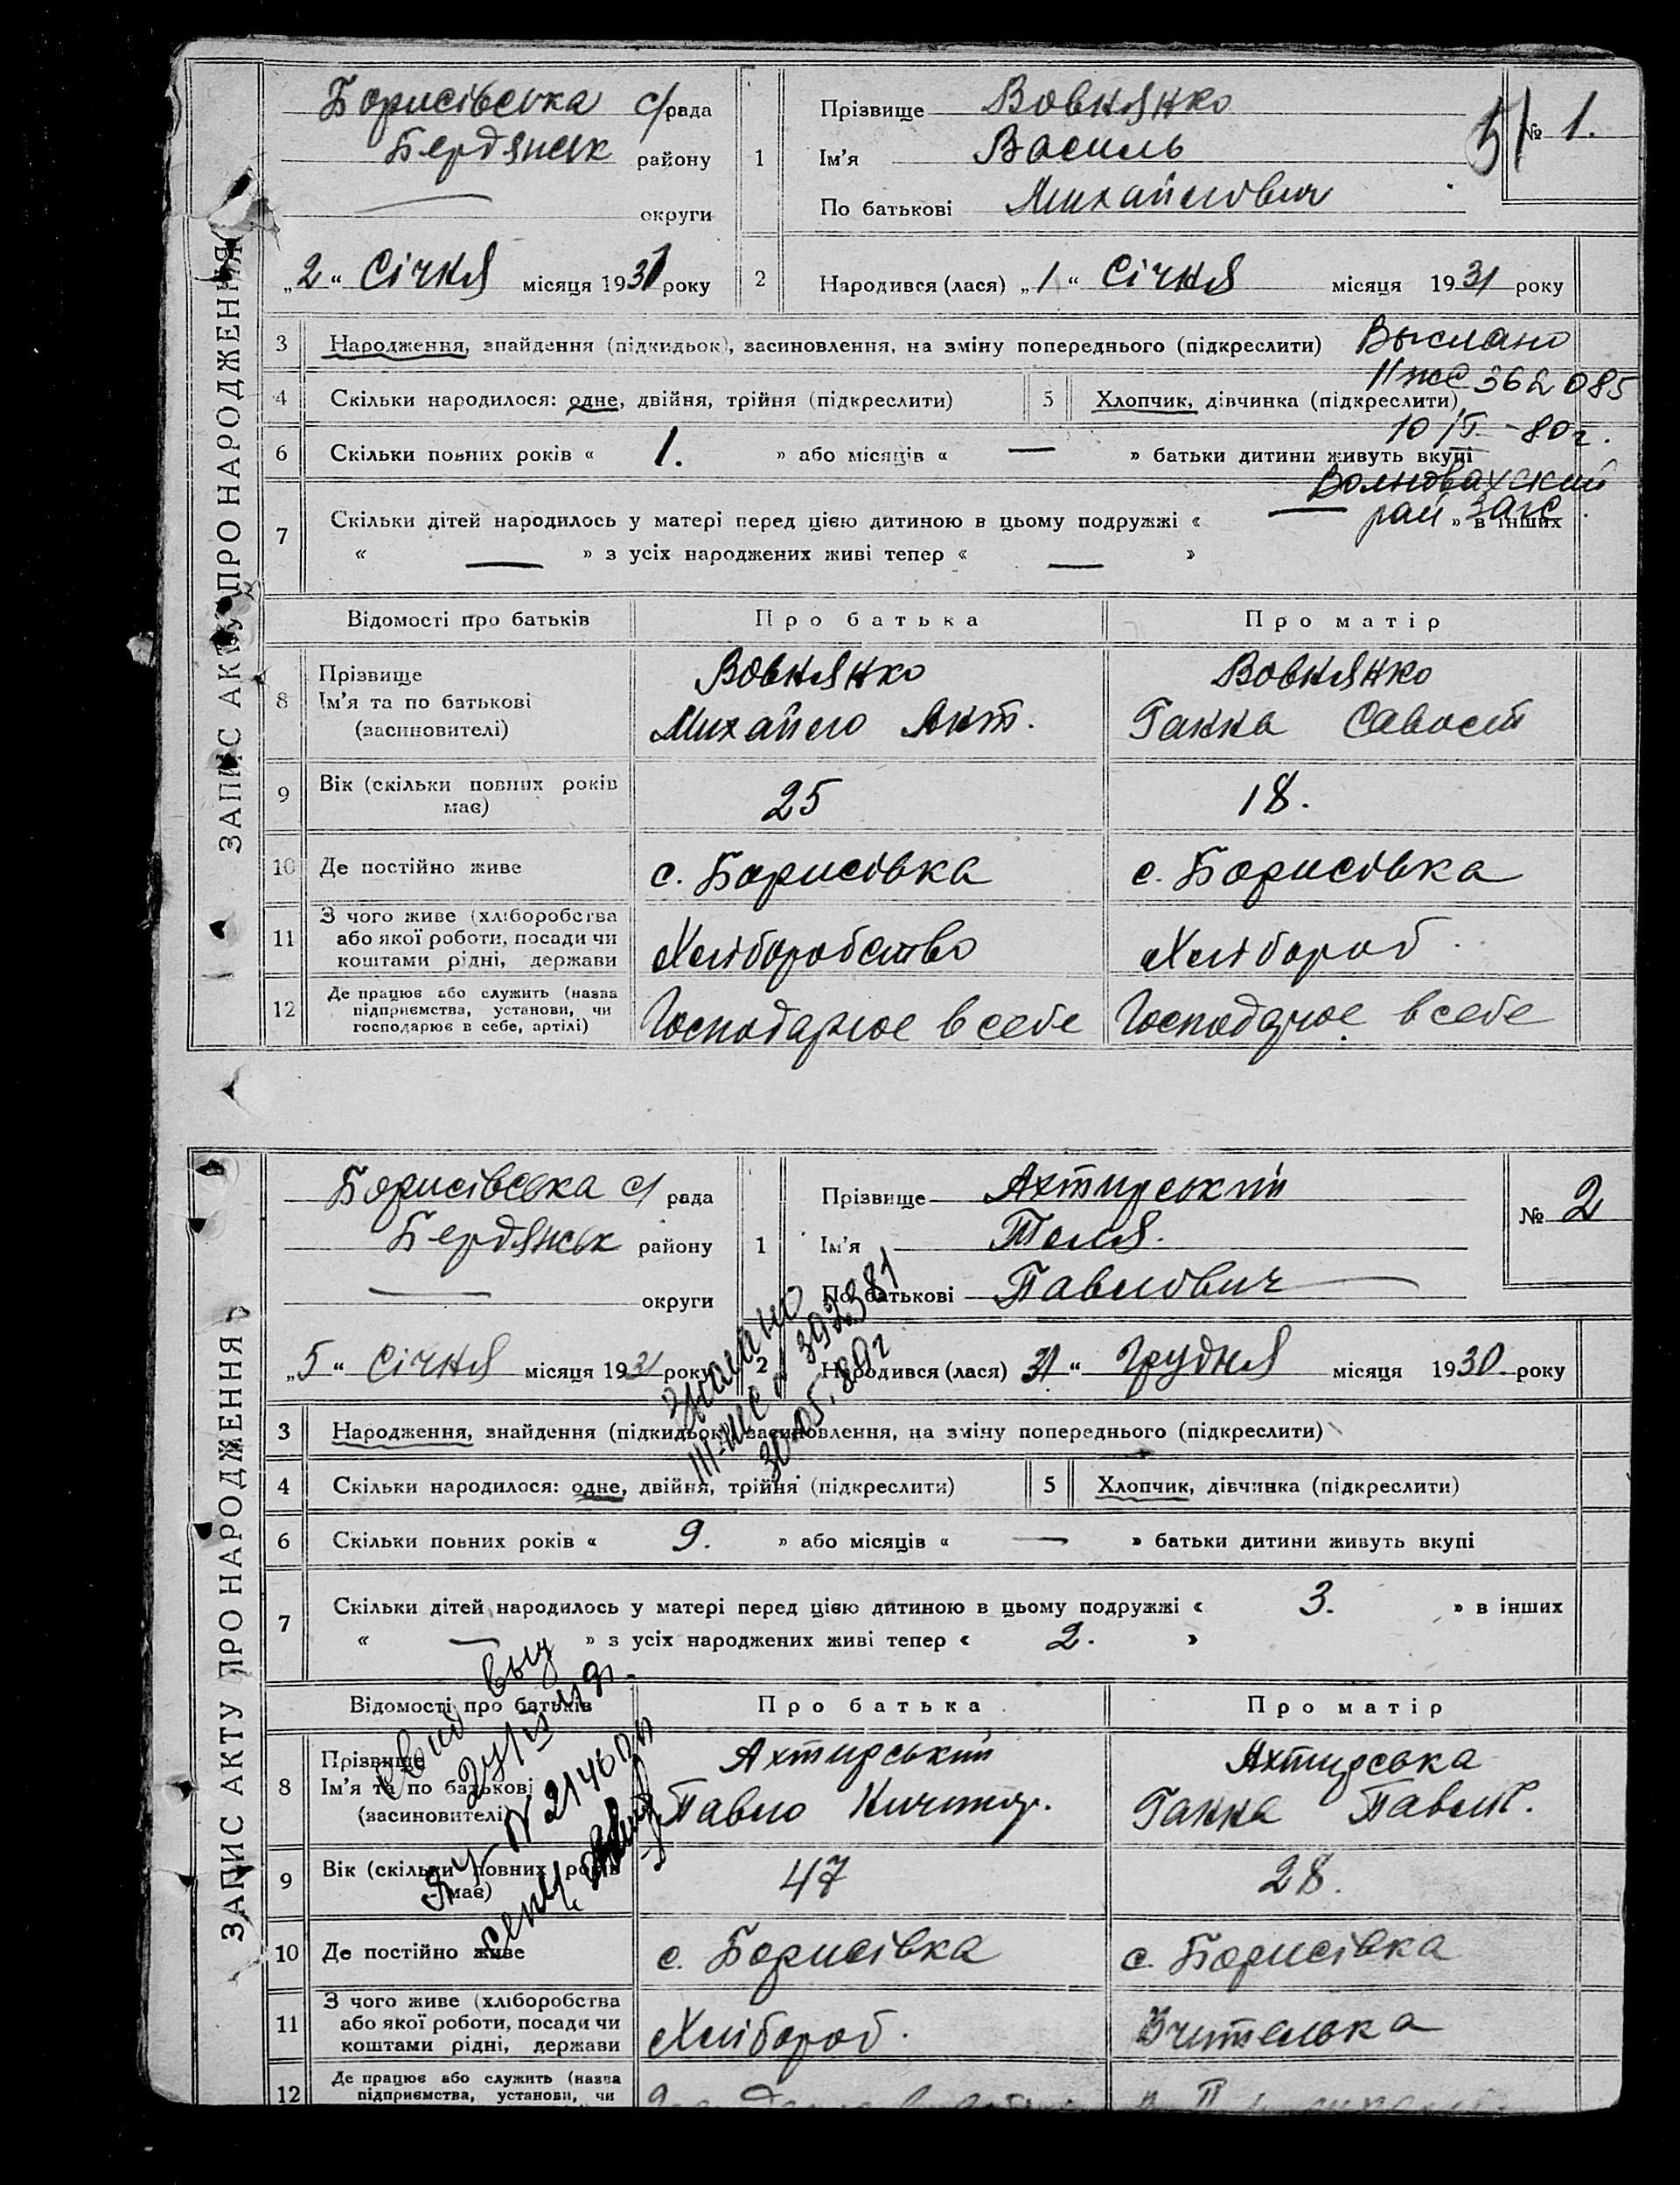 ЗАПИС АКТУ ПРО НАРОДЖЕННЯ
Борисівська с/рада
Бердянськ району
— округи
„2“ Січня місяця 1931 року
1 Прізвище Вовнянко
Ім'я Василь
По батькові Михайлович
№ 1.
2 Народився (лася) „1“ Січня місяця 1931 року
3 Народження, знайдення (підкидьок), засиновлення, на зміну попереднього (підкреслити)
Выслано
II жс 362085
10/V-80г.
Волновахский
рай загс
4 Скільки народилося: одне, двійня, трійня (підкреслити) 5 Хлопчик, дівчинка (підкреслити)
6 Скільки повних років « 1. » або місяців « — » батьки дитини живуть вкупі
7 Скільки дітей народилось у матері перед цією дитиною в цьому подружжі « — » в інших
« — » з усіх народжених живі тепер « — »
Відомості про батьків Про батька Про матір
8 Прізвище Вовнянко Вовнянко
Ім'я та по батькові Михайло Ант. Ганна Савост
(засиновителі)
9 Вік (скільки повних років має) 25 18.
10 Де постійно живе с. Борисівка с. Борисівка
11 З чого живе (хліборобства або якої роботи, посади чи коштами рідні, держави Хліборобство Хлібороб
12 Де працює або служить (назва підприємства, установи, чи господарює в себе, артілі) Господарює в себе Господарює в себе
ЗАПИС АКТУ ПРО НАРОДЖЕННЯ
Борисівська с/рада
Бердянськ району
— округи
„5“ Січня місяця 1931 року
1 Прізвище Ахтирський
Ім'я
По батькові Павлович
№ 2
2 Народився (лася) 31“ Грудня місяця 1930 року
392381
3 Народження, знайдення (підкидьок), засиновлення, на зміну попереднього (підкреслити)
4 Скільки народилося: одне, двійня, трійня (підкреслити) 5 Хлопчик, дівчинка (підкреслити)
6 Скільки повних років « 9. » або місяців « — » батьки дитини живуть вкупі
7 Скільки дітей народилось у матері перед цією дитиною в цьому подружжі « 3. » в інших
« — » з усіх народжених живі тепер « 2. »
Відомості про батьків Про батька Про матір
8 Прізвище Ахтирський Ахтирська
Ім'я та по батькові Павло Ганна Павл.
(засиновителі)
9 Вік (скільки повних років має) 47 28.
10 Де постійно живе с. Борисівка с. Борисівка
11 З чого живе (хліборобства або якої роботи, посади чи коштами рідні, держави Хлібороб. Вчителька
12 Де працює або служить (назва підприємства, установи, чи